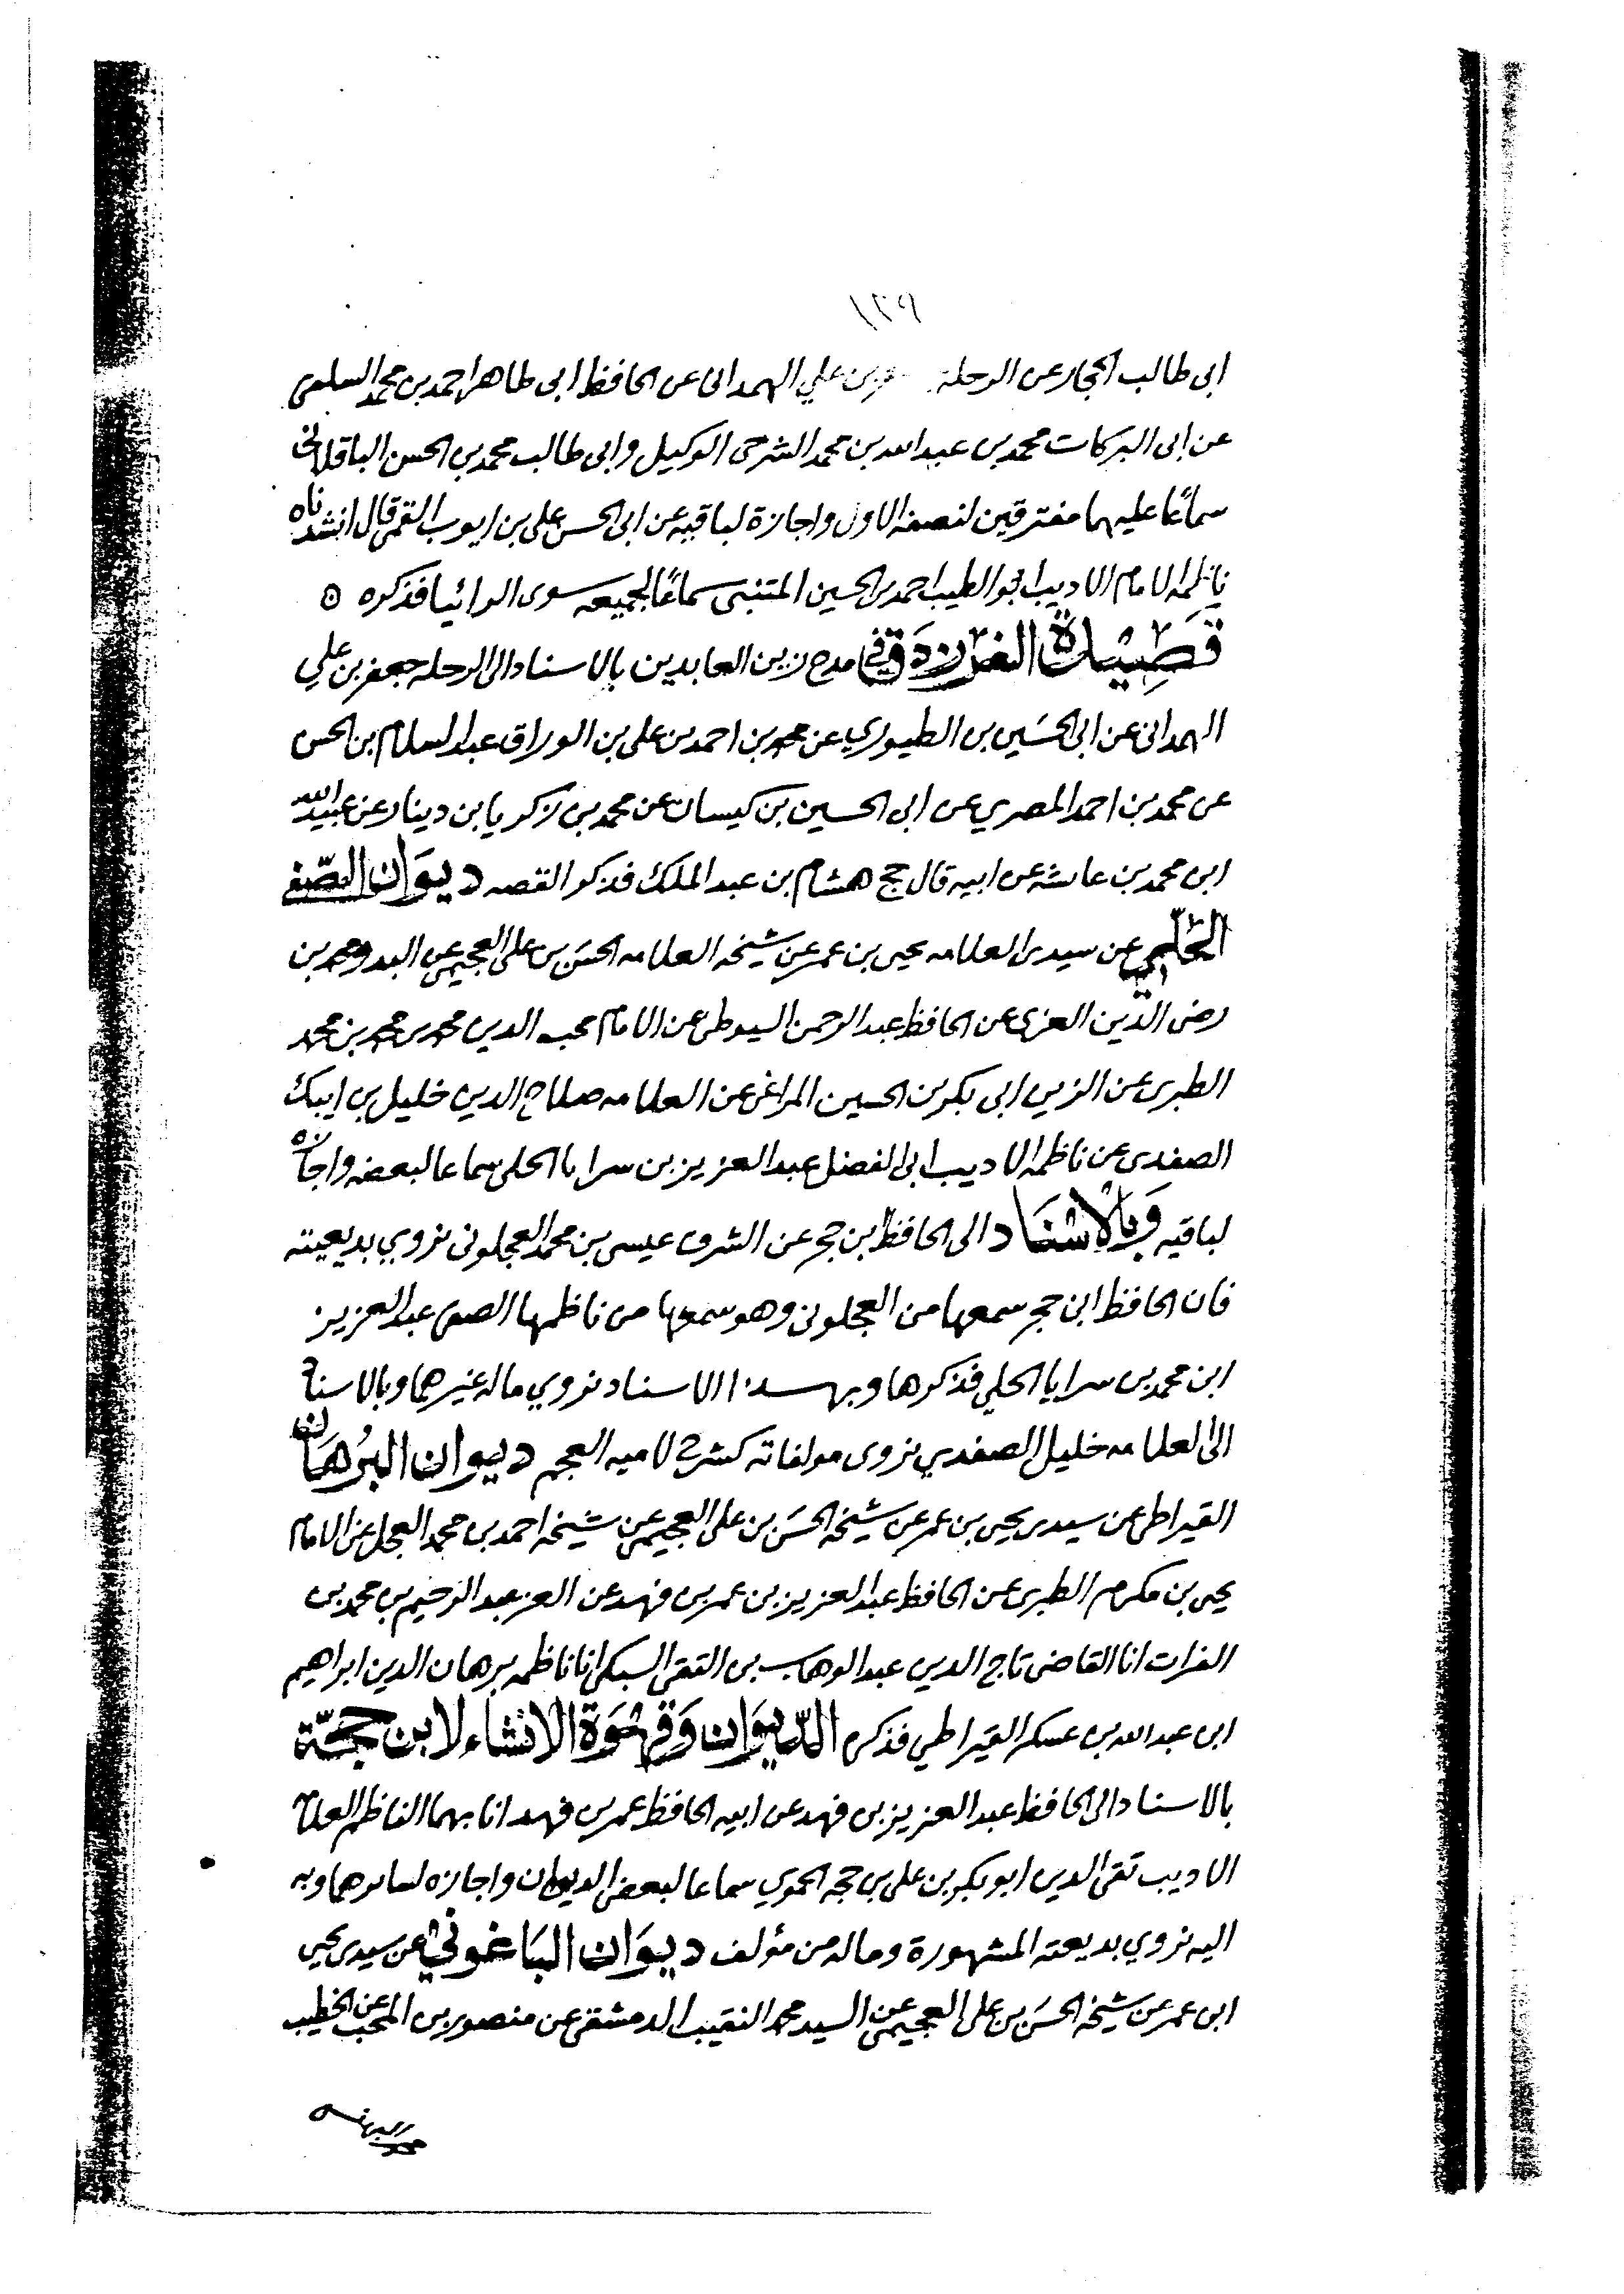 ١٢٩
ابى طالب الحجار عن الرحلة بن علي الهمدانى عن الحافظ ابى طاهر احمد بن محمد السلفى
عن ابى البركات محمد بن عبد الله بن محمد الوكيل وابى طالب محمد بن الحسن الباقلانى
سماعًا عليهما مفترقين لنصفه الاول واجازة لباقيه عن ابى الحسن على بن ايوب القمى قال انشدناه
ناظمه الامام الاديب ابو الطيب احمد بن الحسين المتنبى سماعًا لجميعه سوى فذكره ٥
قصيدة الفرزدق في مدح زين العابدين بالاسناد الى الرحله جعفر بن علي
الهمدانى عن ابى الحسَين بن الطيوري عن محمد بن احمد بن على بن الوراق عبد السلام بن الحسن
عن محمد بن احمد المصري عن ابى الحسين بن كيسان عن محمد بن زكريا بن دينار عن عبيد الله
ابن محمد بن عائشه عن ابيه قال حج هشام بن عبد الملك فذكر القصه ديوَان الصّفي
الحِّلي عن سيدى العلامه يحيى بن عمر عن شيخه العلامه الحسَن بن على العجيمى عن البدر محمد بن
رضى الدين الغزى عن الحافظ عبد الرحمن السيوطى عن الامام محب الدين محمد بن محمد بن محمد
الطبرى عن الزين ابى بكر بن الحسين المراغى عن العلامه صلاح الدين خليل بن ايبك
الصفدى عن ناظمه الاديب ابى الفضل عبد العزيز بن سرايا الحلى سماعا لبعضه واجازه
لباقيه وَبالاسْنَاد الى الحافظ ابن حجر عن الشرف عيسى بن محمد العجلونى نروي بديعيته
فان الحافظ ابن حجر سمعها من العجلونى وهو سمعها من ناظمها الصفى عبد العزيز
ابن محمد بن سرايا الحلي فذكرها وبهذا الاسناد نروي ماله غيرهما وبالاسناد
الى العلامه خليل الصفدي نروى مولفاته كشرح لاميه العجم ديوان البُرهَان
القيراطى عن سيدى يحيى بن عمر عن شيخه الحسَن بن على العجيمى عن شيخه احمد بن محمد العجل عن الامام
يحيى بن مكرم الطبرى عن الحافظ عبد العزيز بن عمر بن فهد عن العز عبد الرحيم بن محمد بن
الفرات انا القاضى تاج الدين عبد الوهاب بن التقى السبكى انا ناظمه برهان الدين ابراهيم
ابن عبد الله بن عسكر القيراطي فذكره الدّيوَان وَقهْوَة الانشاء لابن حجّة
بالاسناد الى الحافظ عبد العزيز بن فهد عن ابيه الحافظ عمر بن فهد انا بهما الناظم العلامه
الاديب تقى الدين ابو بكر بن على بن حجه الحموي سماعا لبعض الديوان واجازه لسائرهما وبه
اليه نروي بديعته المشهورة وماله من مؤلف ديوَان البَاعُوني عن سيدى يحيى
ابن عمر عن شيخه الحسَن بن على العجيمى عن السيد محمد النقيب الدمشقى عن منصور بن المحب عن الخطيب